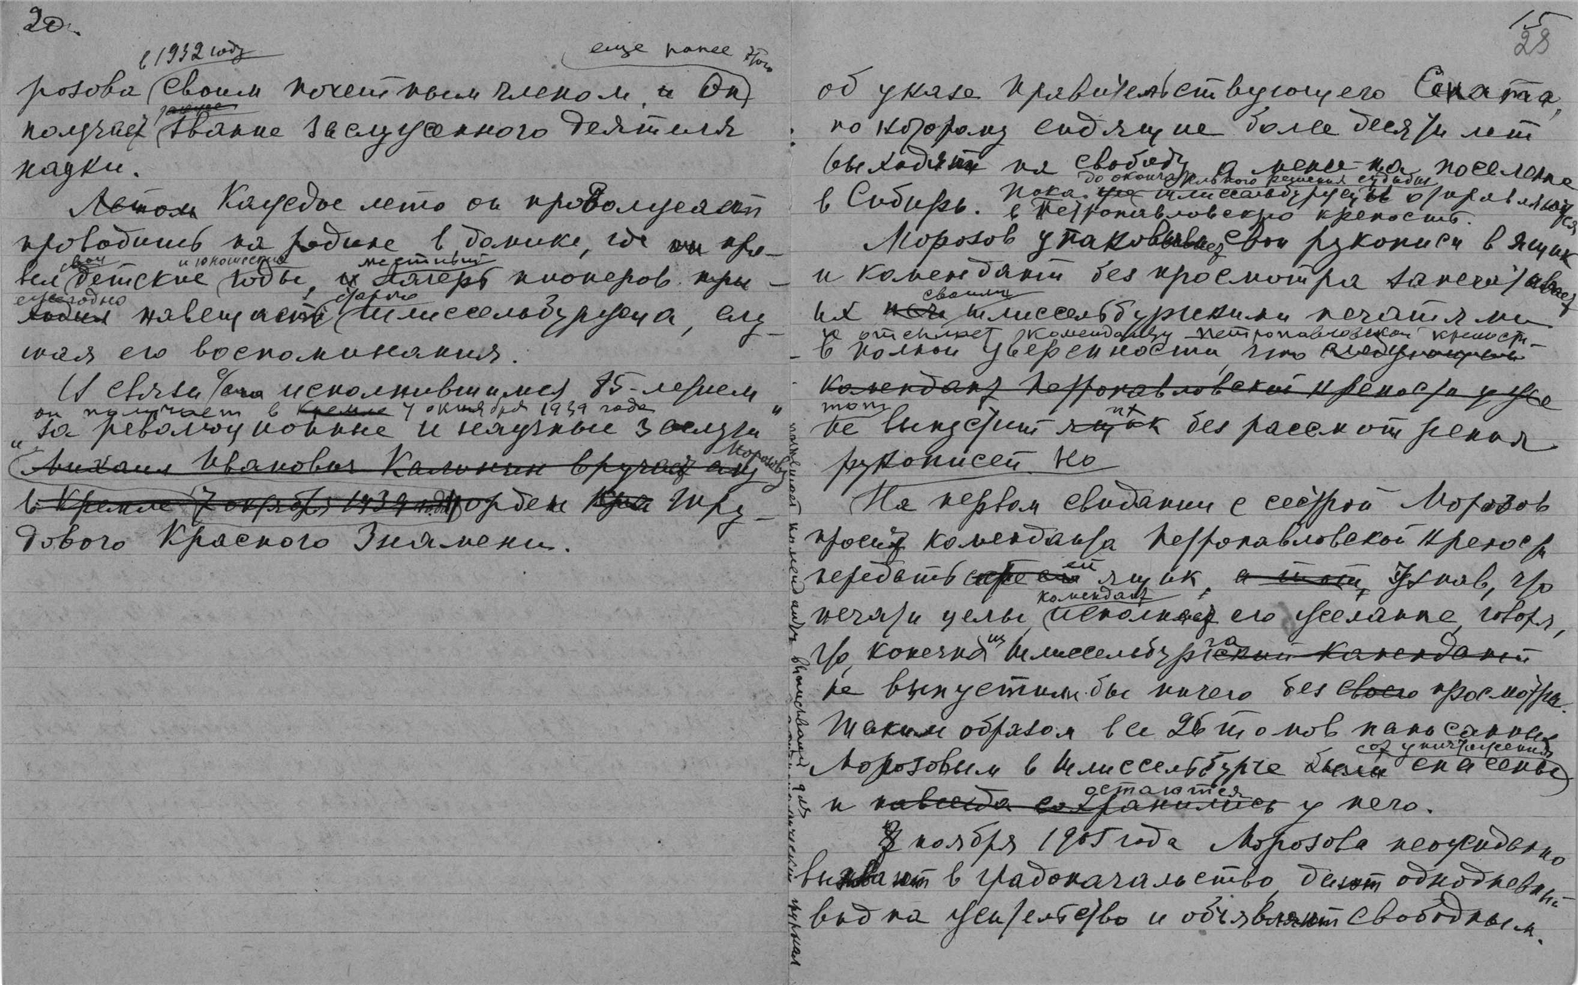 20.
в 1932 году
еще ранее этого
розова своим почетным членом, и Он
раньше
получает звание заслуженного деятеля
науки.
Летом Каждое лето он продолжает
проводить на родине в домике, где он про-
свои и юношеские местный
вел детские годы, и лагерь пионеров при-
ежегодно старого
ходил навещает Шлиссельбуржца, слу-
шая его воспоминания.
В связи с исполнившимся 85-летием
он получает в Кремле 7 октября 1939 года
„за революционные и научные заслуги"
Михаил Иванович Калинин вручает ему Морозову
в Кремле 7 октября 1939 года орден Кра Тру-
дового Красного Знамени.
15
28
об указе правительствующего Сената,
по которому сидящие более десяти лет
выходят на свободу а менее - на поселение
до окончательного решения судьбы
в Сибирь. Пока шлиссельбуржцев отправляются
в Петропавловскую крепость.
Морозов упаковывает свои рукописи в ящик
и комендант без просмотра запечатывает
своими
их шлиссельбуржскими печатями
и отсылает коменданту Петропавловской крепост-
в полной уверенности, что
комендант Петропавловской крепости уже
тот их
не выпустит ящик без рассмотрения
рукописей. Но
На первом свидании с сестрой Морозов
просит коменданта Петропавловской крепости
передать ей ящик, а тот, узнав, что
комендант
печати целы, исполняет его желание, говоря,
что, конечно из Шлиссельбургский комендант
га
не выпустили бы ничего без своего просмотра.
Таким образом все 26 томов написанных
от уничтожения
Морозовым в Шлиссельбурге были спасены
остаются
и навсегда сохранились у него.
8 ноября 1905 года Морозова неожиданно
вызывают в градоначальство, дают однодневный
вид на жительство и объявляют свободным.